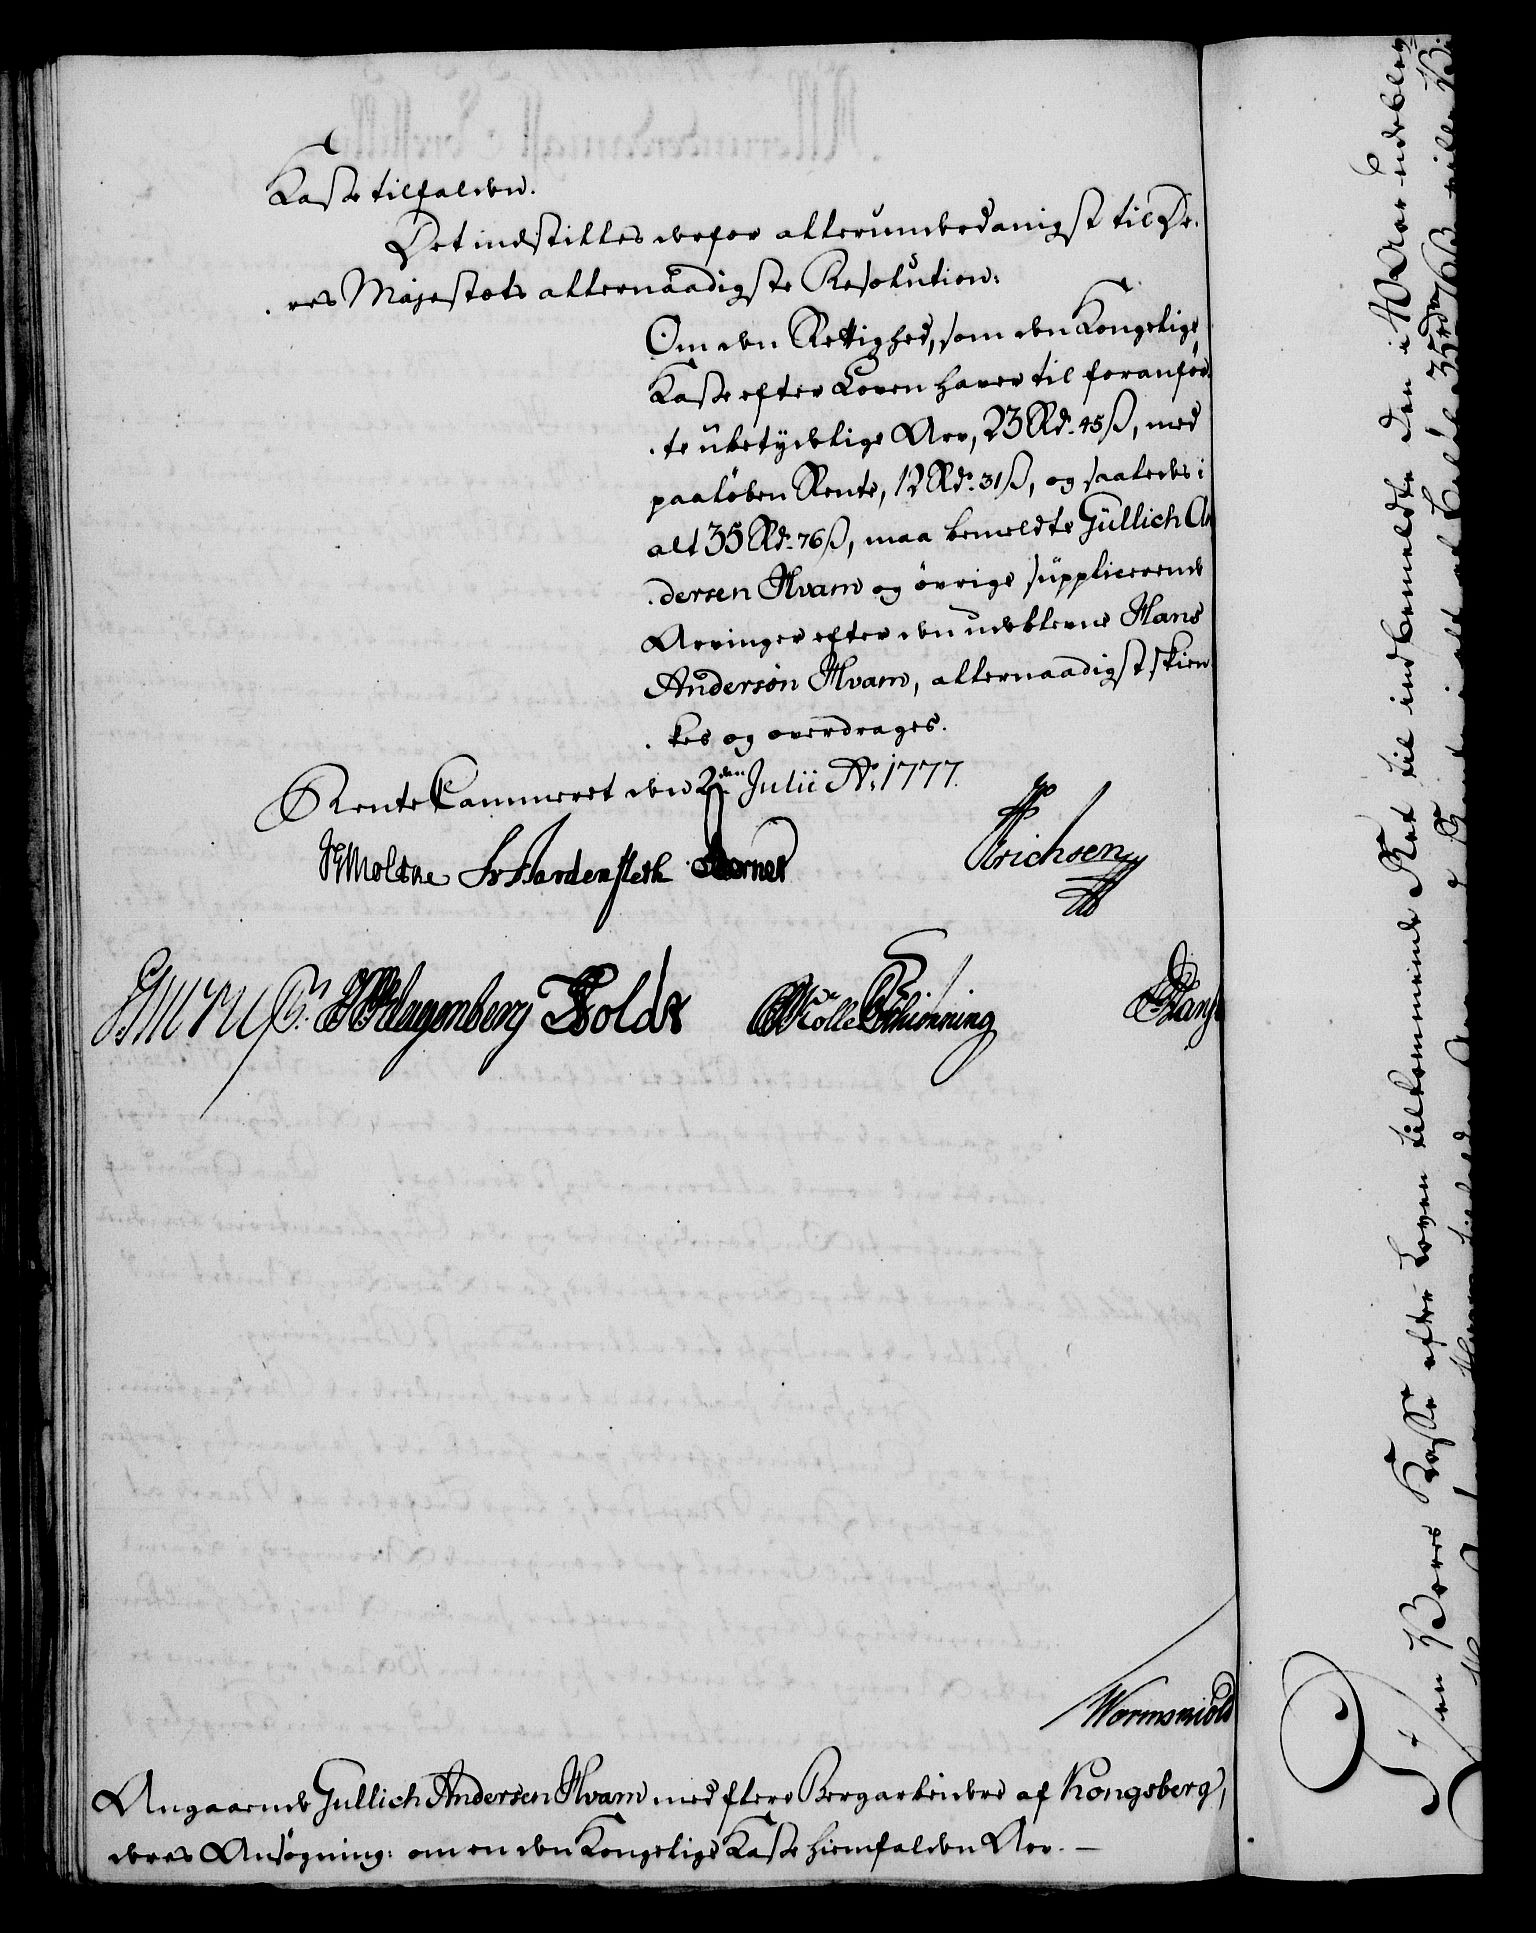 Kasse tilfalden.
Det indstilles derfor allerunderdanigst til De-
res Majestæts allernaadigste Resolution:
Om den Rettighed, som den Kongelige
Kasse efter Loven haver til foranfør-
te ubetydelige Arv, 23 Rd. 45 ß, med
paaløben Rente, 12 Rd. 31 ß, og saaledes i
alt 35 Rd. 76 ß, maa bemeldte Güllich An
dersen Hvam og øvrige supplicerende
Arvinger efter den udeblevne Hans
Andersøn Hvam, allernaadigst skien-
kes og overdrages.
RenteKammeret den 2den Julii Ao. 1777.
Moltke Hardenfleth Berner Erichsen
Klagenberg Holdt Mölle Schiönning
Wormskiold
Angaaende Gullich Andersen Hvam med flere Bergarbeidere af Kongsberg,
deres Ansøgning: om en den Kongelige Kasse hiemfalden Arv. —
Den Vores Kasse efter Loven tilkommende Ret til indbemeldte den i 40 Aar udeblev-
35 rdr 76 ß